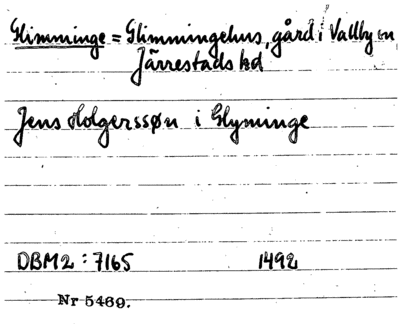 Glimminge = Glimmingehus, gård i Vallby sn
Järrestads hd
Jens Holgerssøn i Glyminge
DBM2 : 7165 1492
Nr 5469.